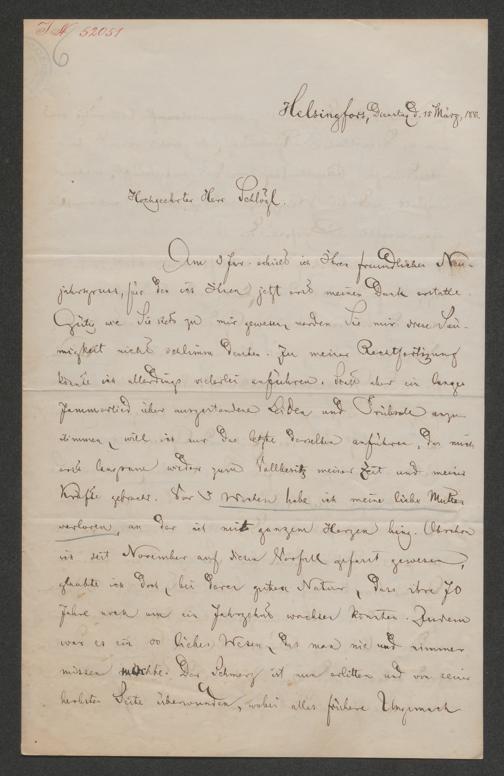 I.N. 52051
6
Helsingfors, Dienstag d. 15 März, 188
Hochgeehrter Herr Schlögl.
Am 3 Jan. erhielt ich Ihren freundlichen Neu-
jahrsgruss, für den ich Ihnen jetzt erst meinen Dank erstatte.
Gütig wie Sie stets zu mir gewesen, werden Sie mir diese Säu-
migkeit nicht schlimm deuten. Zu meiner Rechtfertigung
könnte ich allerdings vielerlei anführen. Statt aber ein langes
Jammerlied über ausgestandene Leiden und Trübsale anzu-
stimmen, will ich nur das letzte derselben anführen, das mich
erst langsam wieder zum Vollbesitz meiner Zeit und meiner
Kräfte gebracht. Vor 3 Wochen habe ich meine liebe Mutter
verloren, an der ich mit ganzem Herzen hing. Obschon
ich seit November auf diesen Vorfall gefasst gewesen,
glaubte ich doch, bei deren guten Natur, dass ihre 70
Jahre noch um ein Jahrzehnt wachsen könnten. Zudem
war es ein so liebes Wesen, das man nie und nimmer
missen möchte. Der Schmerz ist nun erlitten und von seiner
herbsten Seite überwunden, wobei alles frühere Ungemach